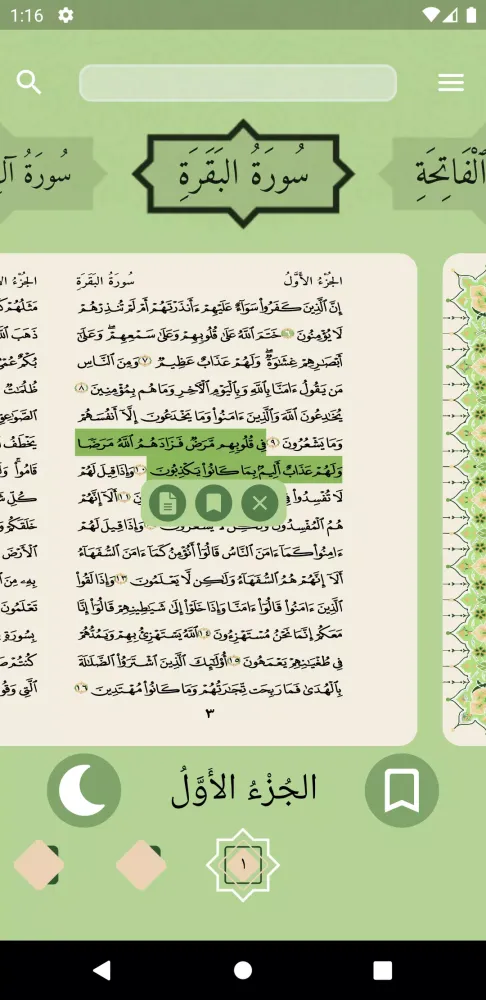 1:16
سُورَةُ آل
سُورَةُ البَقَرَةِ
الْفَاتِحَةِ
الجُزْءُ الأَوَّلُ
سُورَةُ البَقَرَةِ
إِنَّ الَّذِينَ كَفَرُوا۟ سَوَآءٌ عَلَيْهِمْ ءَأَنذَرْتَهُمْ أَمْ لَمْ تُنذِرْهُمْ
لَا يُؤْمِنُونَ ٦ خَتَمَ ٱللَّهُ عَلَىٰ قُلُوبِهِمْ وَعَلَىٰ سَمْعِهِمْ ۖ وَعَلَىٰٓ
أَبْصَٰرِهِمْ غِشَٰوَةٌ ۖ وَلَهُمْ عَذَابٌ عَظِيمٌ ٧ وَمِنَ ٱلنَّاسِ
مَن يَقُولُ ءَامَنَّا بِٱللَّهِ وَبِٱلْيَوْمِ ٱلْءَاخِرِ وَمَا هُم بِمُؤْمِنِينَ ٨
يُخَٰدِعُونَ ٱللَّهَ وَٱلَّذِينَ ءَامَنُوا۟ وَمَا يَخْدَعُونَ إِلَّآ أَنفُسَهُمْ
وَمَا يَشْعُرُونَ ٩ فِى قُلُوبِهِم مَّرَضٌ فَزَادَهُمُ ٱللَّهُ مَرَضًا
وَلَهُمْ عَذَابٌ أَلِيمٌۢ بِمَا كَانُوا۟ يَكْذِبُونَ ١٠ وَإِذَا قِيلَ لَهُمْ
لَا تُفْسِدُوا۟ ١١ أَلَآ إِنَّهُمْ
هُمُ ٱلْمُفْسِدُونَ وَإِذَا قِيلَ لَهُمْ
ءَامِنُوا۟ كَمَآ ءَامَنَ ٱلنَّاسُ قَالُوٓا۟ أَنُؤْمِنُ كَمَآ ءَامَنَ ٱلسُّفَهَآءُ
أَلَآ إِنَّهُمْ هُمُ ٱلسُّفَهَآءُ وَلَٰكِن لَّا يَعْلَمُونَ ١٣ وَإِذَا لَقُوا۟
ٱلَّذِينَ ءَامَنُوا۟ قَالُوٓا۟ ءَامَنَّا وَإِذَا خَلَوْا۟ إِلَىٰ شَيَٰطِينِهِمْ قَالُوٓا۟ إِنَّا
مَعَكُمْ إِنَّمَا نَحْنُ مُسْتَهْزِءُونَ ١٤ ٱللَّهُ يَسْتَهْزِئُ بِهِمْ وَيَمُدُّهُمْ
فِى طُغْيَٰنِهِمْ يَعْمَهُونَ ١٥ أُو۟لَٰٓئِكَ ٱلَّذِينَ ٱشْتَرَوُا۟ ٱلضَّلَٰلَةَ
بِٱلْهُدَىٰ فَمَا رَبِحَت تِّجَٰرَتُهُمْ وَمَا كَانُوا۟ مُهْتَدِينَ ١٦
٣
الجُزْءُ الأَوَّلُ
١